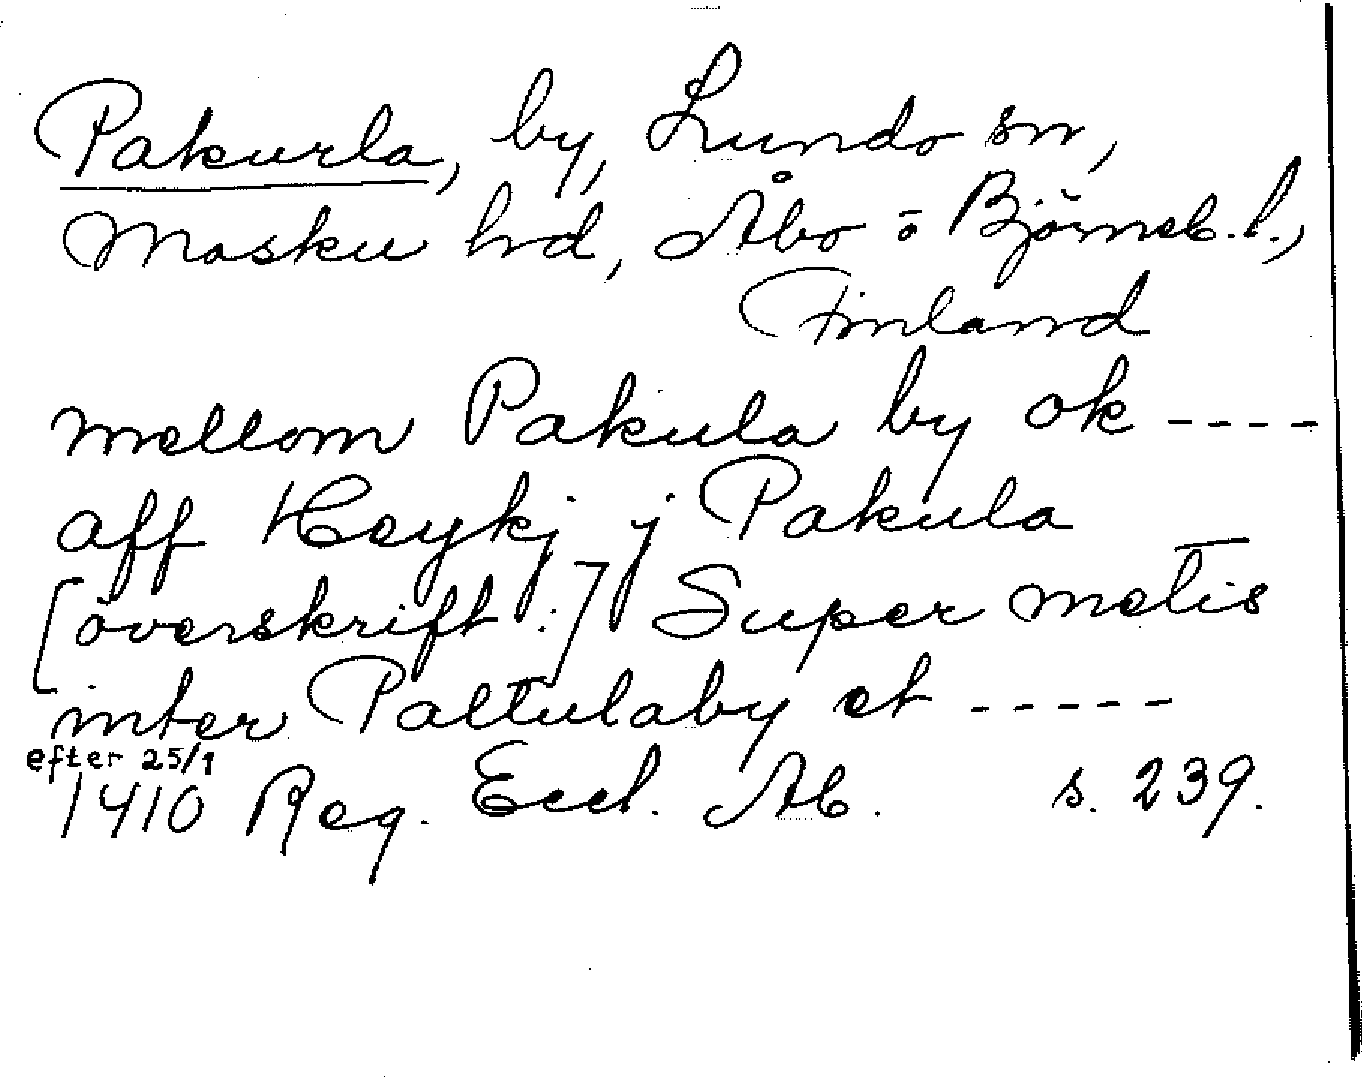 Pakurla, by, Lundo sn,
Masku hd, Åbo o Björneb. l.,
Finland
mellom Pakula by ok ----
aff Heykj j Pakula
[överskrift:] Super metis
inter Paltulaby et -----
efter 25/1
1410 Reg. Eccl. Ab. s. 239.